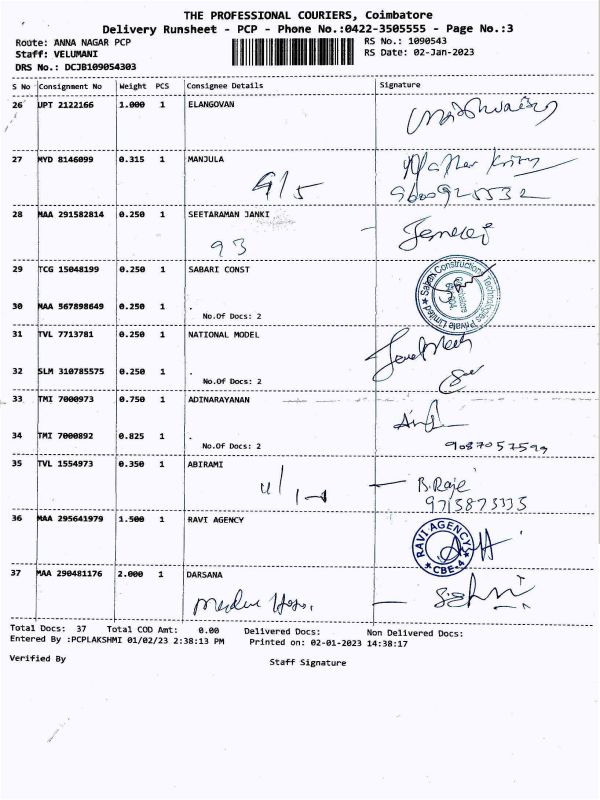 THE PROFESSIONAL COURIERS, Coimbatore
Delivery Runsheet - PCP - Phone No.:0422-3505555 - Page No.:3
Route: ANNA NAGAR PCP RS No.: 1090543
Staff: VELUMANI RS Date: 02-Jan-2023
DRS No.: DCJB109054303
S No Consignment No Weight PCS Consignee Details Signature
26 UPT 2122166 1.000 1 ELANGOVAN
27 MYD 8146099 0.315 1 MANJULA
9/5
28 MAA 291582814 0.250 1 SEETARAMAN JANKI
93
29 TCG 15048199 0.250 1 SABARI CONST
30 MAA 567898649 0.250 1 .
No.Of Docs: 2
31 TVL 7713781 0.250 1 NATIONAL MODEL
32 SLM 310785575 0.250 1 .
No.Of Docs: 2
33 TMI 7000973 0.750 1 ADINARAYANAN
34 TMI 7000892 0.825 1 .
No.Of Docs: 2
35 TVL 1554973 0.350 1 ABIRAMI
B. Raje
36 MAA 295641979 1.500 1 RAVI AGENCY
RAVI AGENCY
CBE-4
37 MAA 290481176 2.000 1 DARSANA
Total Docs: 37 Total COD Amt: 0.00 Delivered Docs: Non Delivered Docs:
Entered By :PCPLAKSHMI 01/02/23 2:38:13 PM Printed on: 02-01-2023 14:38:17
Verified By Staff Signature